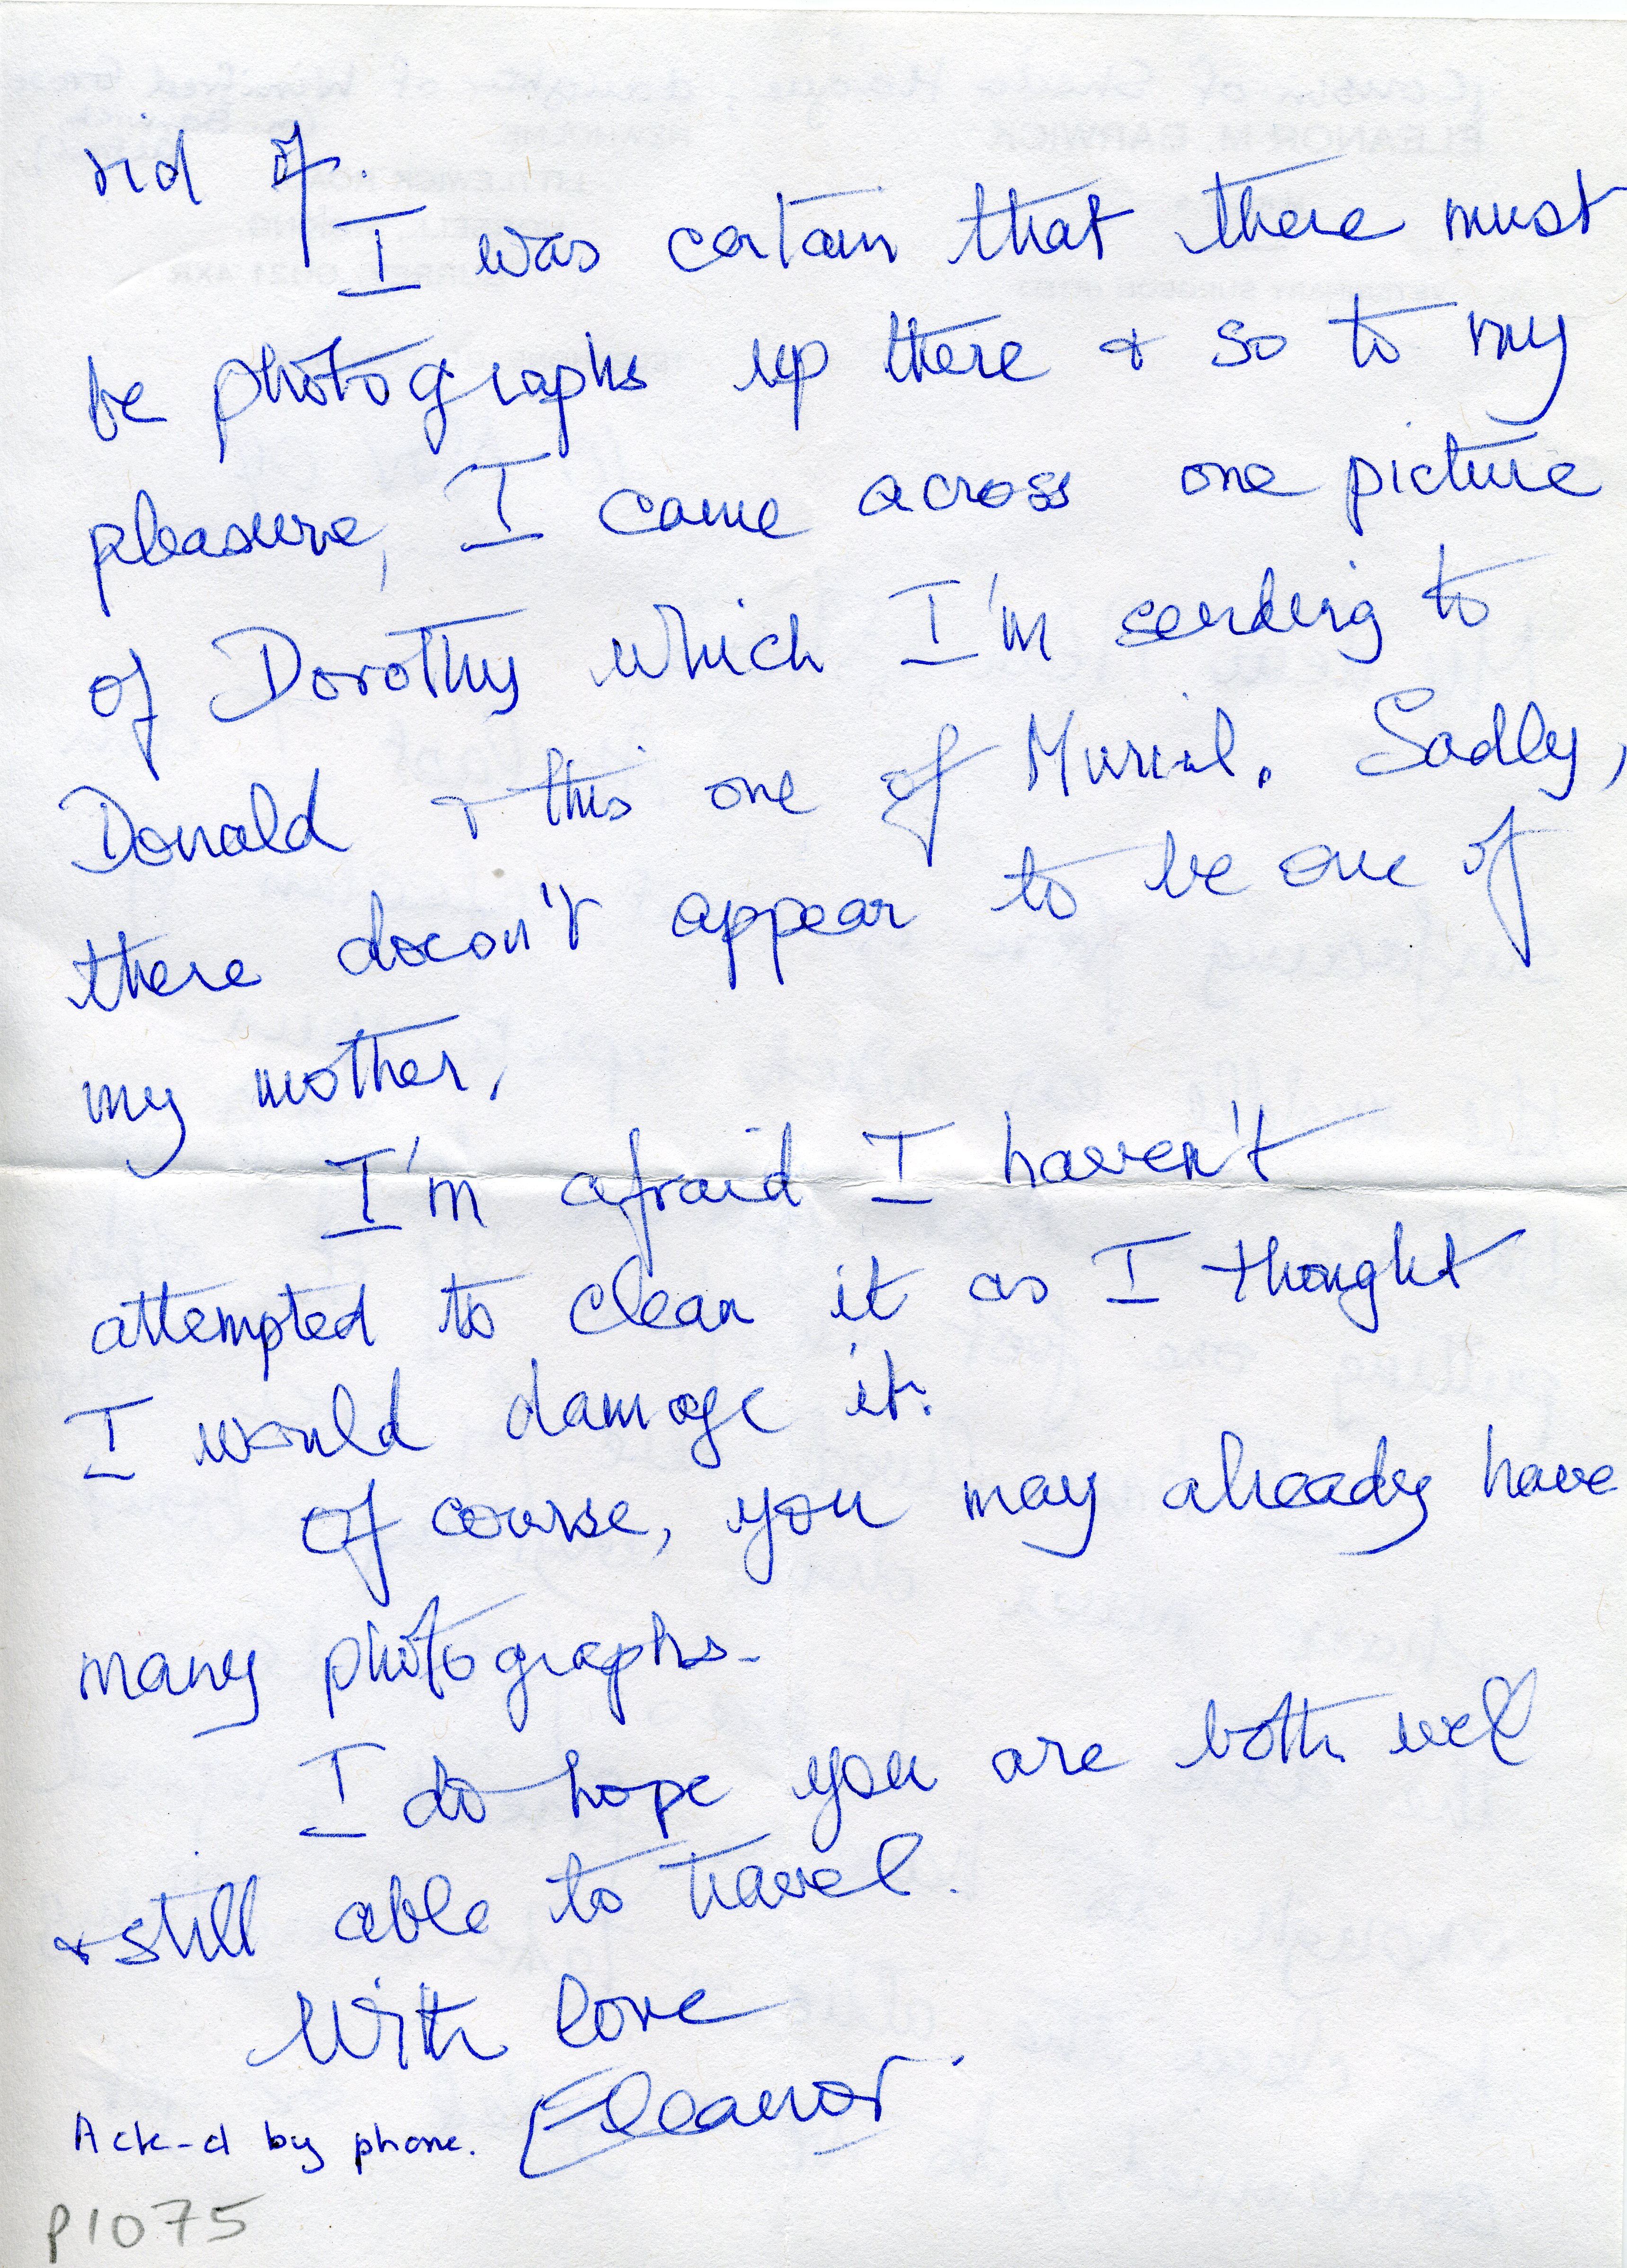 rid of.
I was certain that there must
be photographs up there & so to my
pleasure, I came across one picture
of Dorothy which I'm sending to
Donald & this one of Muriel. Sadly,
there doesn't appear to be one of
my mother.
I'm afraid I haven't
attempted to clean it as I thought
I would damage it.
Of course, you may already have
many photographs.
I do hope you are both well
& still able to travel.
With love
Eleanor.
Ack-d by phone.
P1075